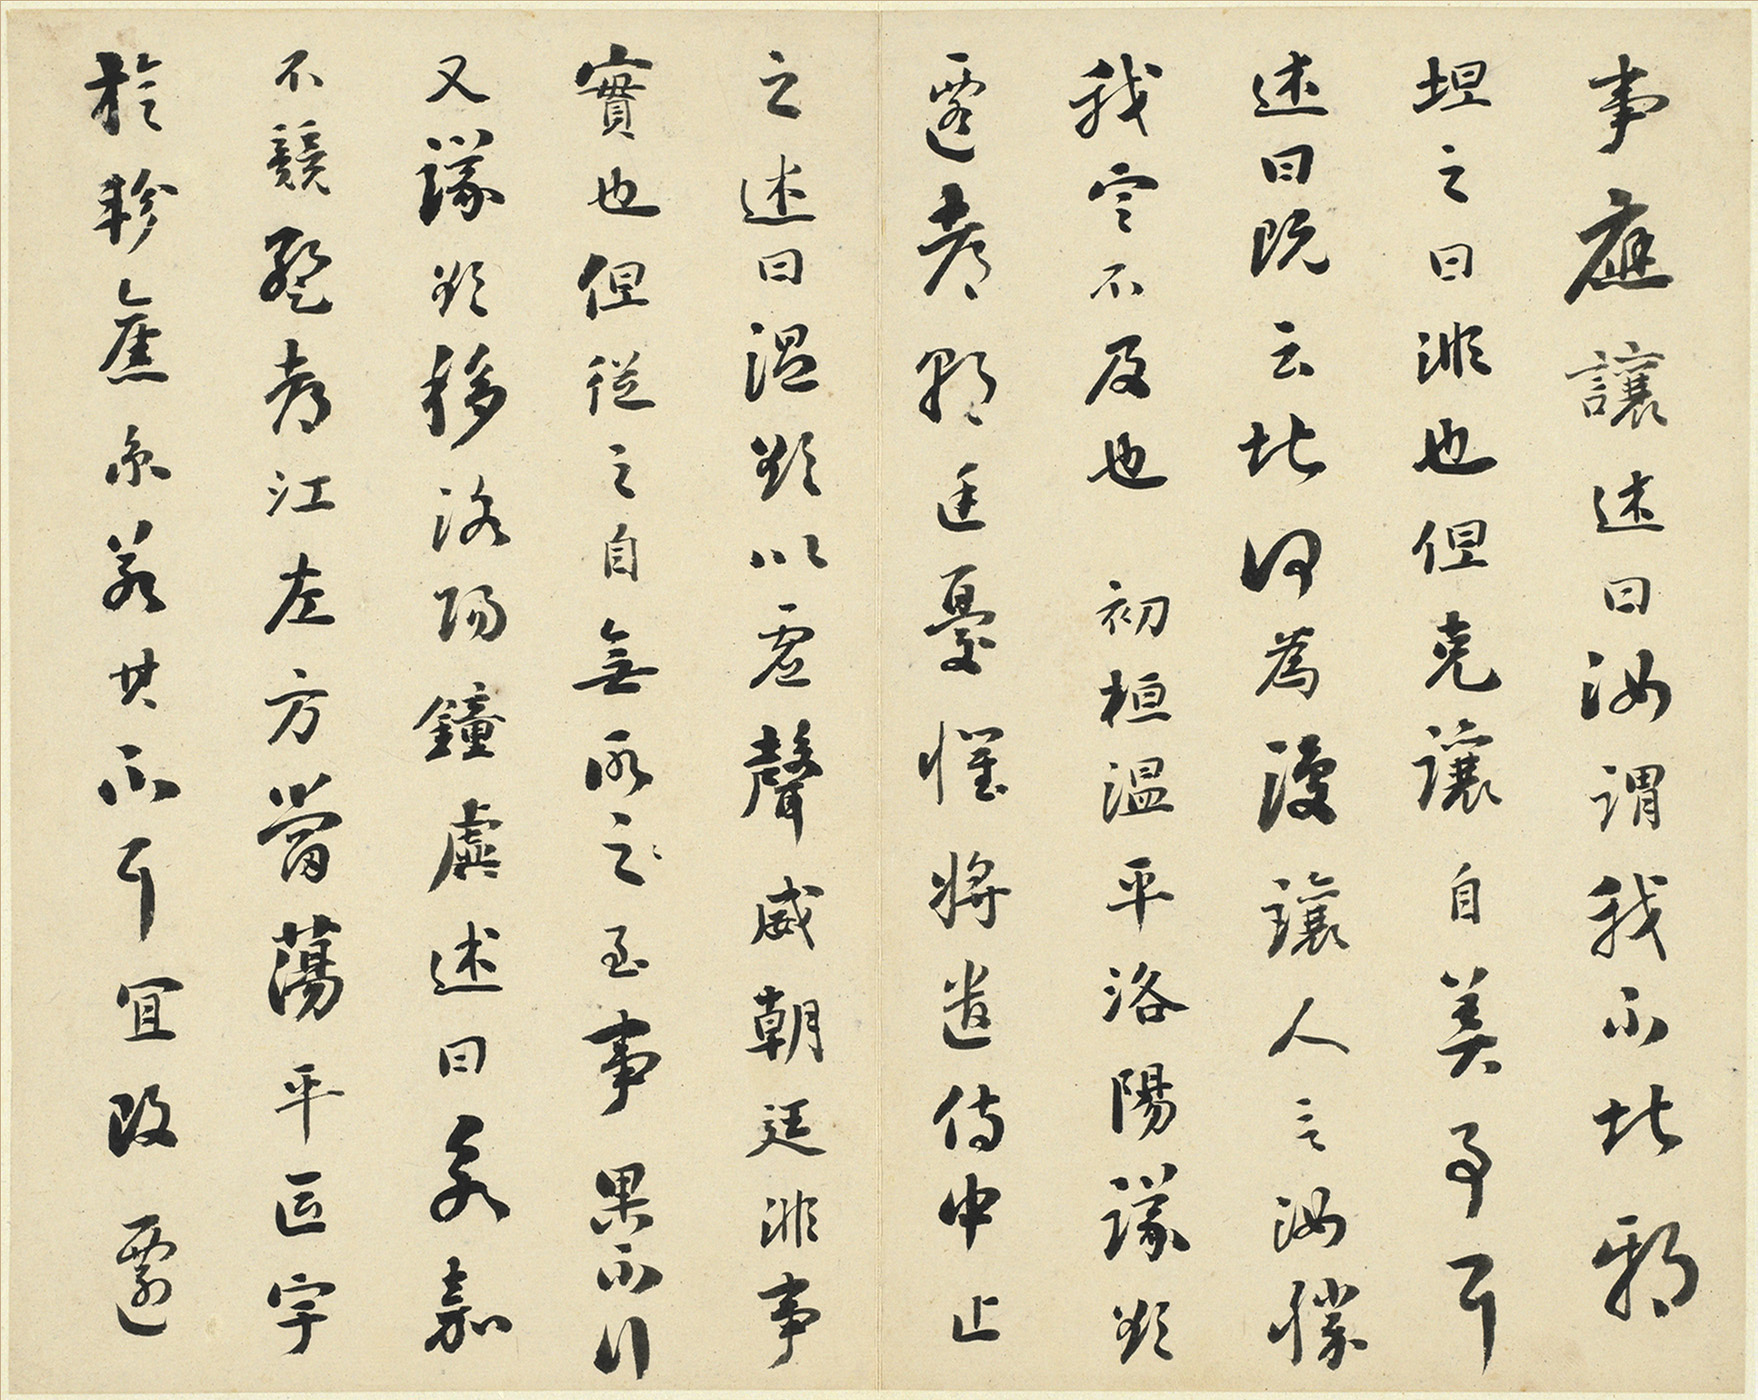 事應讓述曰汝謂我不堪邪
坦之曰非也但克讓自美事耳
述曰既云堪何為復讓人言汝勝
我定不及也 初桓溫平洛陽議欲
遷都朝廷憂懼將遣侍中止
之述曰溫欲以虛聲威朝廷非事
實也但從之自無所之至事果不行
又議欲移洛陽鐘虡述曰永嘉
不競暫都江左方當蕩平區宇
旋軫舊京若其不耳宜改遷